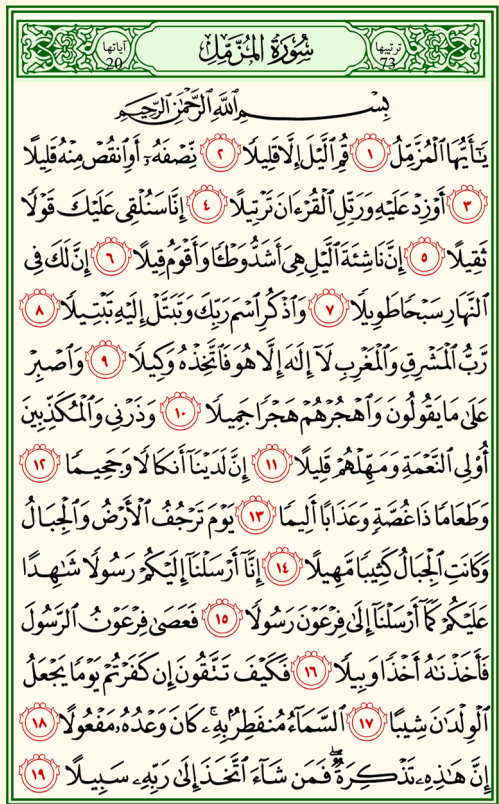 آياتها 20 سُورَةُ المُزَّمِّلِ ترتيبها 73
بِسْمِ اللَّهِ الرَّحْمَٰنِ الرَّحِيمِ
يَٰٓأَيُّهَا ٱلْمُزَّمِّلُ ١ قُمِ ٱلَّيْلَ إِلَّا قَلِيلًا ٢ نِّصْفَهُۥٓ أَوِ ٱنقُصْ مِنْهُ قَلِيلًا
٣ أَوْ زِدْ عَلَيْهِ وَرَتِّلِ ٱلْقُرْءَانَ تَرْتِيلًا ٤ إِنَّا سَنُلْقِى عَلَيْكَ قَوْلًا
ثَقِيلًا ٥ إِنَّ نَاشِئَةَ ٱلَّيْلِ هِىَ أَشَدُّ وَطْـًٔا وَأَقْوَمُ قِيلًا ٦ إِنَّ لَكَ فِى
ٱلنَّهَارِ سَبْحًا طَوِيلًا ٧ وَٱذْكُرِ ٱسْمَ رَبِّكَ وَتَبَتَّلْ إِلَيْهِ تَبْتِيلًا ٨
رَّبُّ ٱلْمَشْرِقِ وَٱلْمَغْرِبِ لَآ إِلَٰهَ إِلَّا هُوَ فَٱتَّخِذْهُ وَكِيلًا ٩ وَٱصْبِرْ
عَلَىٰ مَا يَقُولُونَ وَٱهْجُرْهُمْ هَجْرًا جَمِيلًا ١٠ وَذَرْنِى وَٱلْمُكَذِّبِينَ
أُو۟لِى ٱلنَّعْمَةِ وَمَهِّلْهُمْ قَلِيلًا ١١ إِنَّ لَدَيْنَآ أَنكَالًا وَجَحِيمًا ١٢
وَطَعَامًا ذَا غُصَّةٍ وَعَذَابًا أَلِيمًا ١٣ يَوْمَ تَرْجُفُ ٱلْأَرْضُ وَٱلْجِبَالُ
وَكَانَتِ ٱلْجِبَالُ كَثِيبًا مَّهِيلًا ١٤ إِنَّآ أَرْسَلْنَآ إِلَيْكُمْ رَسُولًا شَٰهِدًا
عَلَيْكُمْ كَمَآ أَرْسَلْنَآ إِلَىٰ فِرْعَوْنَ رَسُولًا ١٥ فَعَصَىٰ فِرْعَوْنُ ٱلرَّسُولَ
فَأَخَذْنَٰهُ أَخْذًا وَبِيلًا ١٦ فَكَيْفَ تَتَّقُونَ إِن كَفَرْتُمْ يَوْمًا يَجْعَلُ
ٱلْوِلْدَٰنَ شِيبًا ١٧ ٱلسَّمَآءُ مُنفَطِرٌۢ بِهِۦ ۚ كَانَ وَعْدُهُۥ مَفْعُولًا ١٨
إِنَّ هَٰذِهِۦ تَذْكِرَةٌ ۖ فَمَن شَآءَ ٱتَّخَذَ إِلَىٰ رَبِّهِۦ سَبِيلًا ١٩